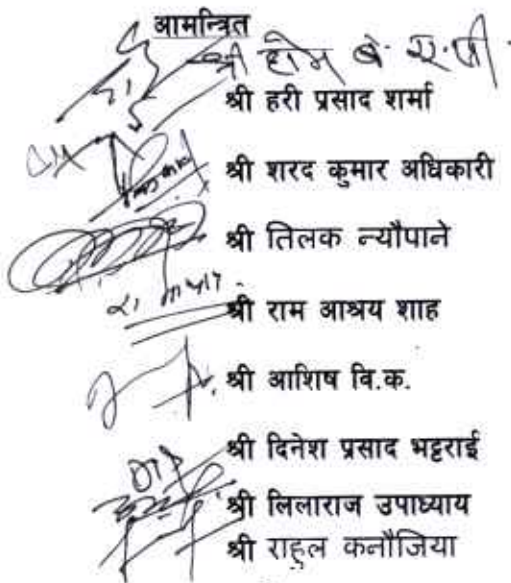 आमन्त्रित
श्री होम ब. सु.जी
श्री हरी प्रसाद शर्मा
श्री शरद कुमार अधिकारी
श्री तिलक न्यौपाने
श्री राम आश्रय शाह
श्री आशिष वि.क.
श्री दिनेश प्रसाद भट्टराई
श्री लिलाराज उपाध्याय
श्री राहुल कनौजिया